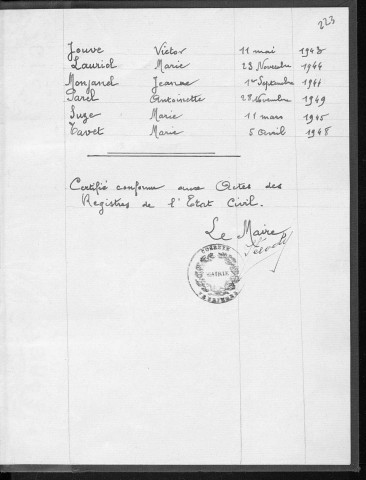 223
Jouve Victor 11 mai 1943
Lauriol Marie 23 Novembre 1944
Monjanel Jeanne 1er Septembre 1944
Sarel Antoinette 28 Novembre 1949
Suze Marie 11 mars 1945
Tavet Marie 5 Avril 1948
Certifié conforme aux Actes des
Registres de l'Etat Civil.
Le Maire
MAIRIE